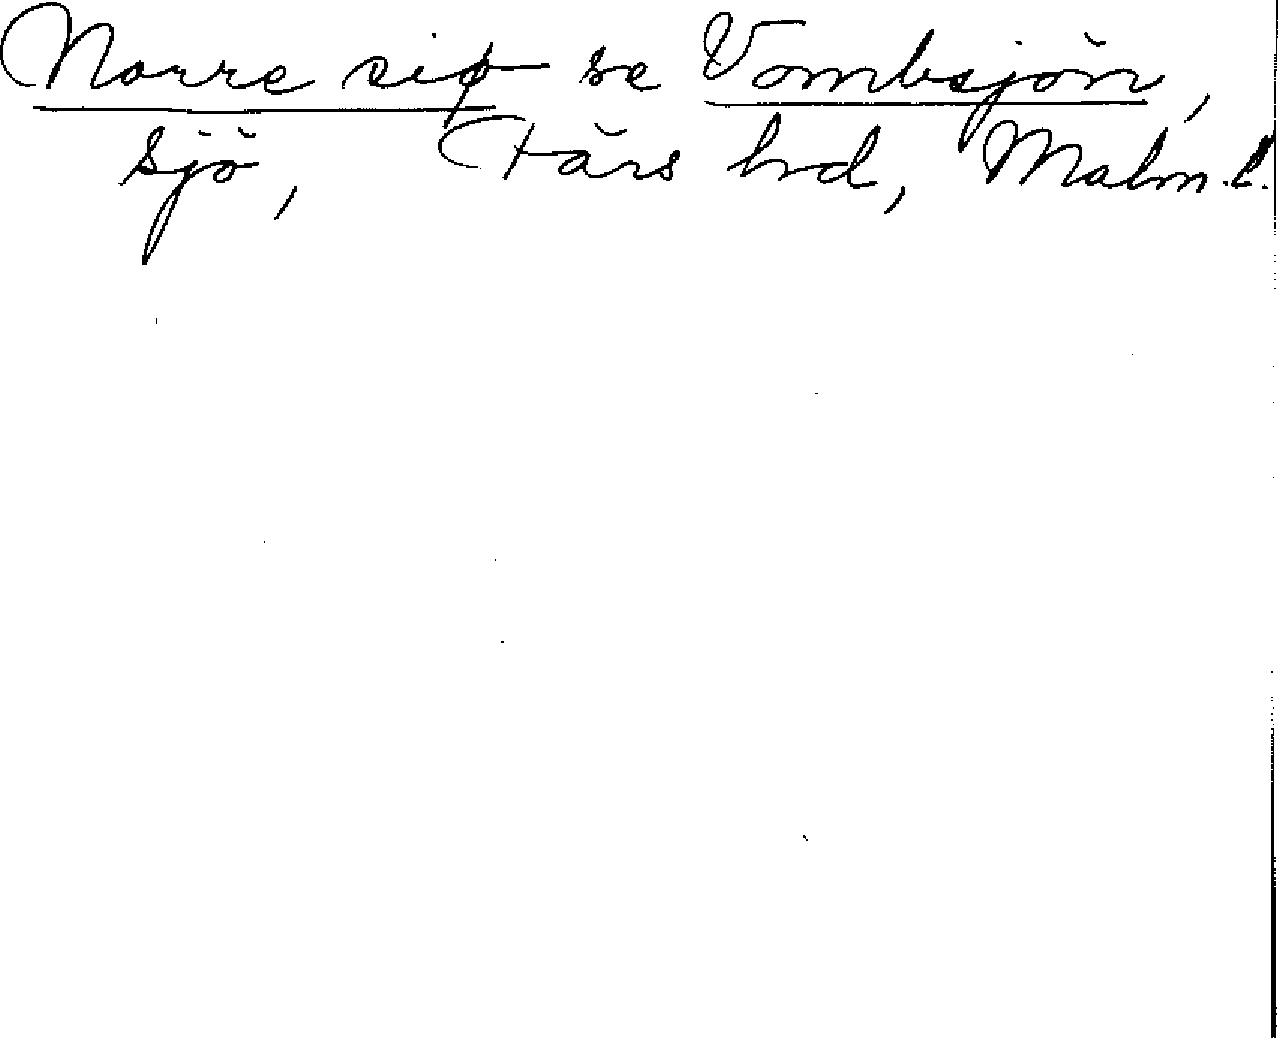 Norre siø se Vombsjön,
sjö, Färs hd, Malm. l.